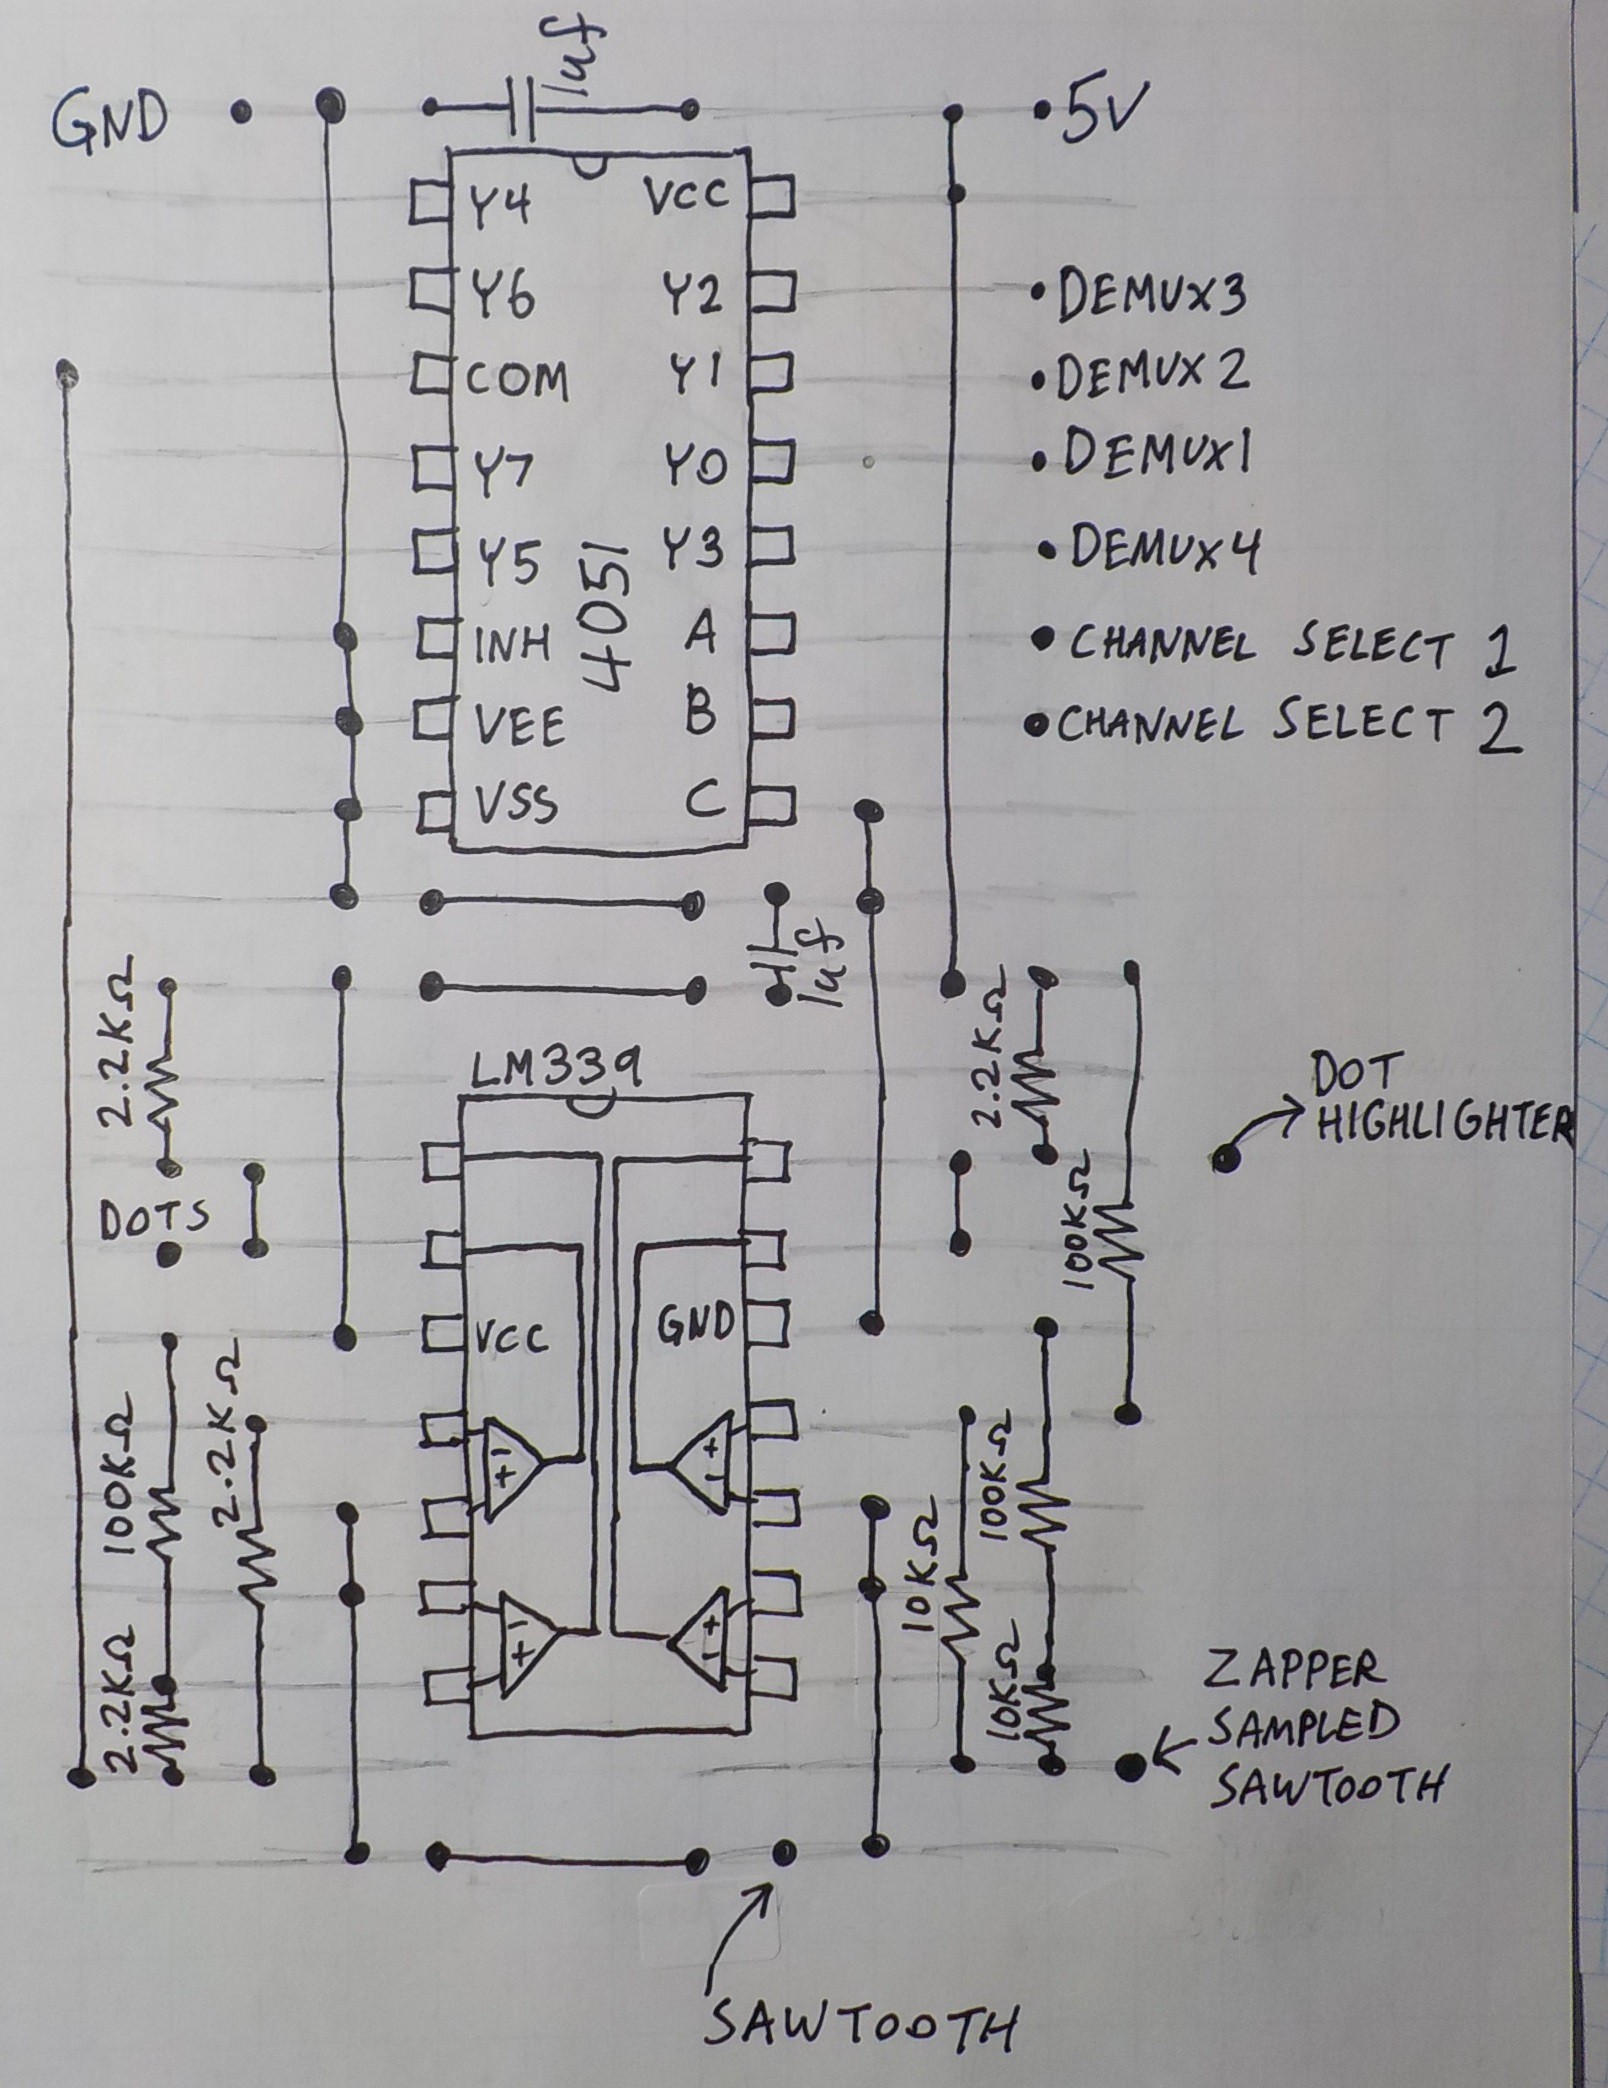 1uf
GND
5V
Y4 VCC
Y6 Y2 DEMUX3
COM Y1 DEMUX2
Y7 Y0 DEMUX1
Y5 Y3 DEMUX4
4051
INH A CHANNEL SELECT 1
VEE B CHANNEL SELECT 2
VSS C
1uf
2.2KΩ
2.2KΩ
LM339
DOT
HIGHLIGHTER
DOTS
100KΩ
VCC GND
100KΩ
2.2KΩ
- +
+ -
10KΩ
100KΩ
2.2KΩ
- +
+ -
10KΩ
ZAPPER
SAMPLED
SAWTOOTH
SAWTOOTH